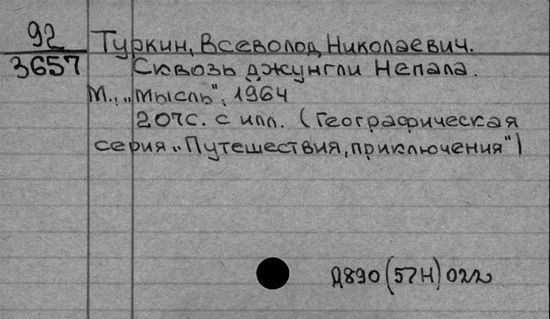 92
3657
Туркин, Всеволод Николаевич.
Сквозь джунгли Непала.
М., „Мысль", 1964
207с. с илл. (Географическая
серия „Путешествия, приключения")
Д890(57Н)022